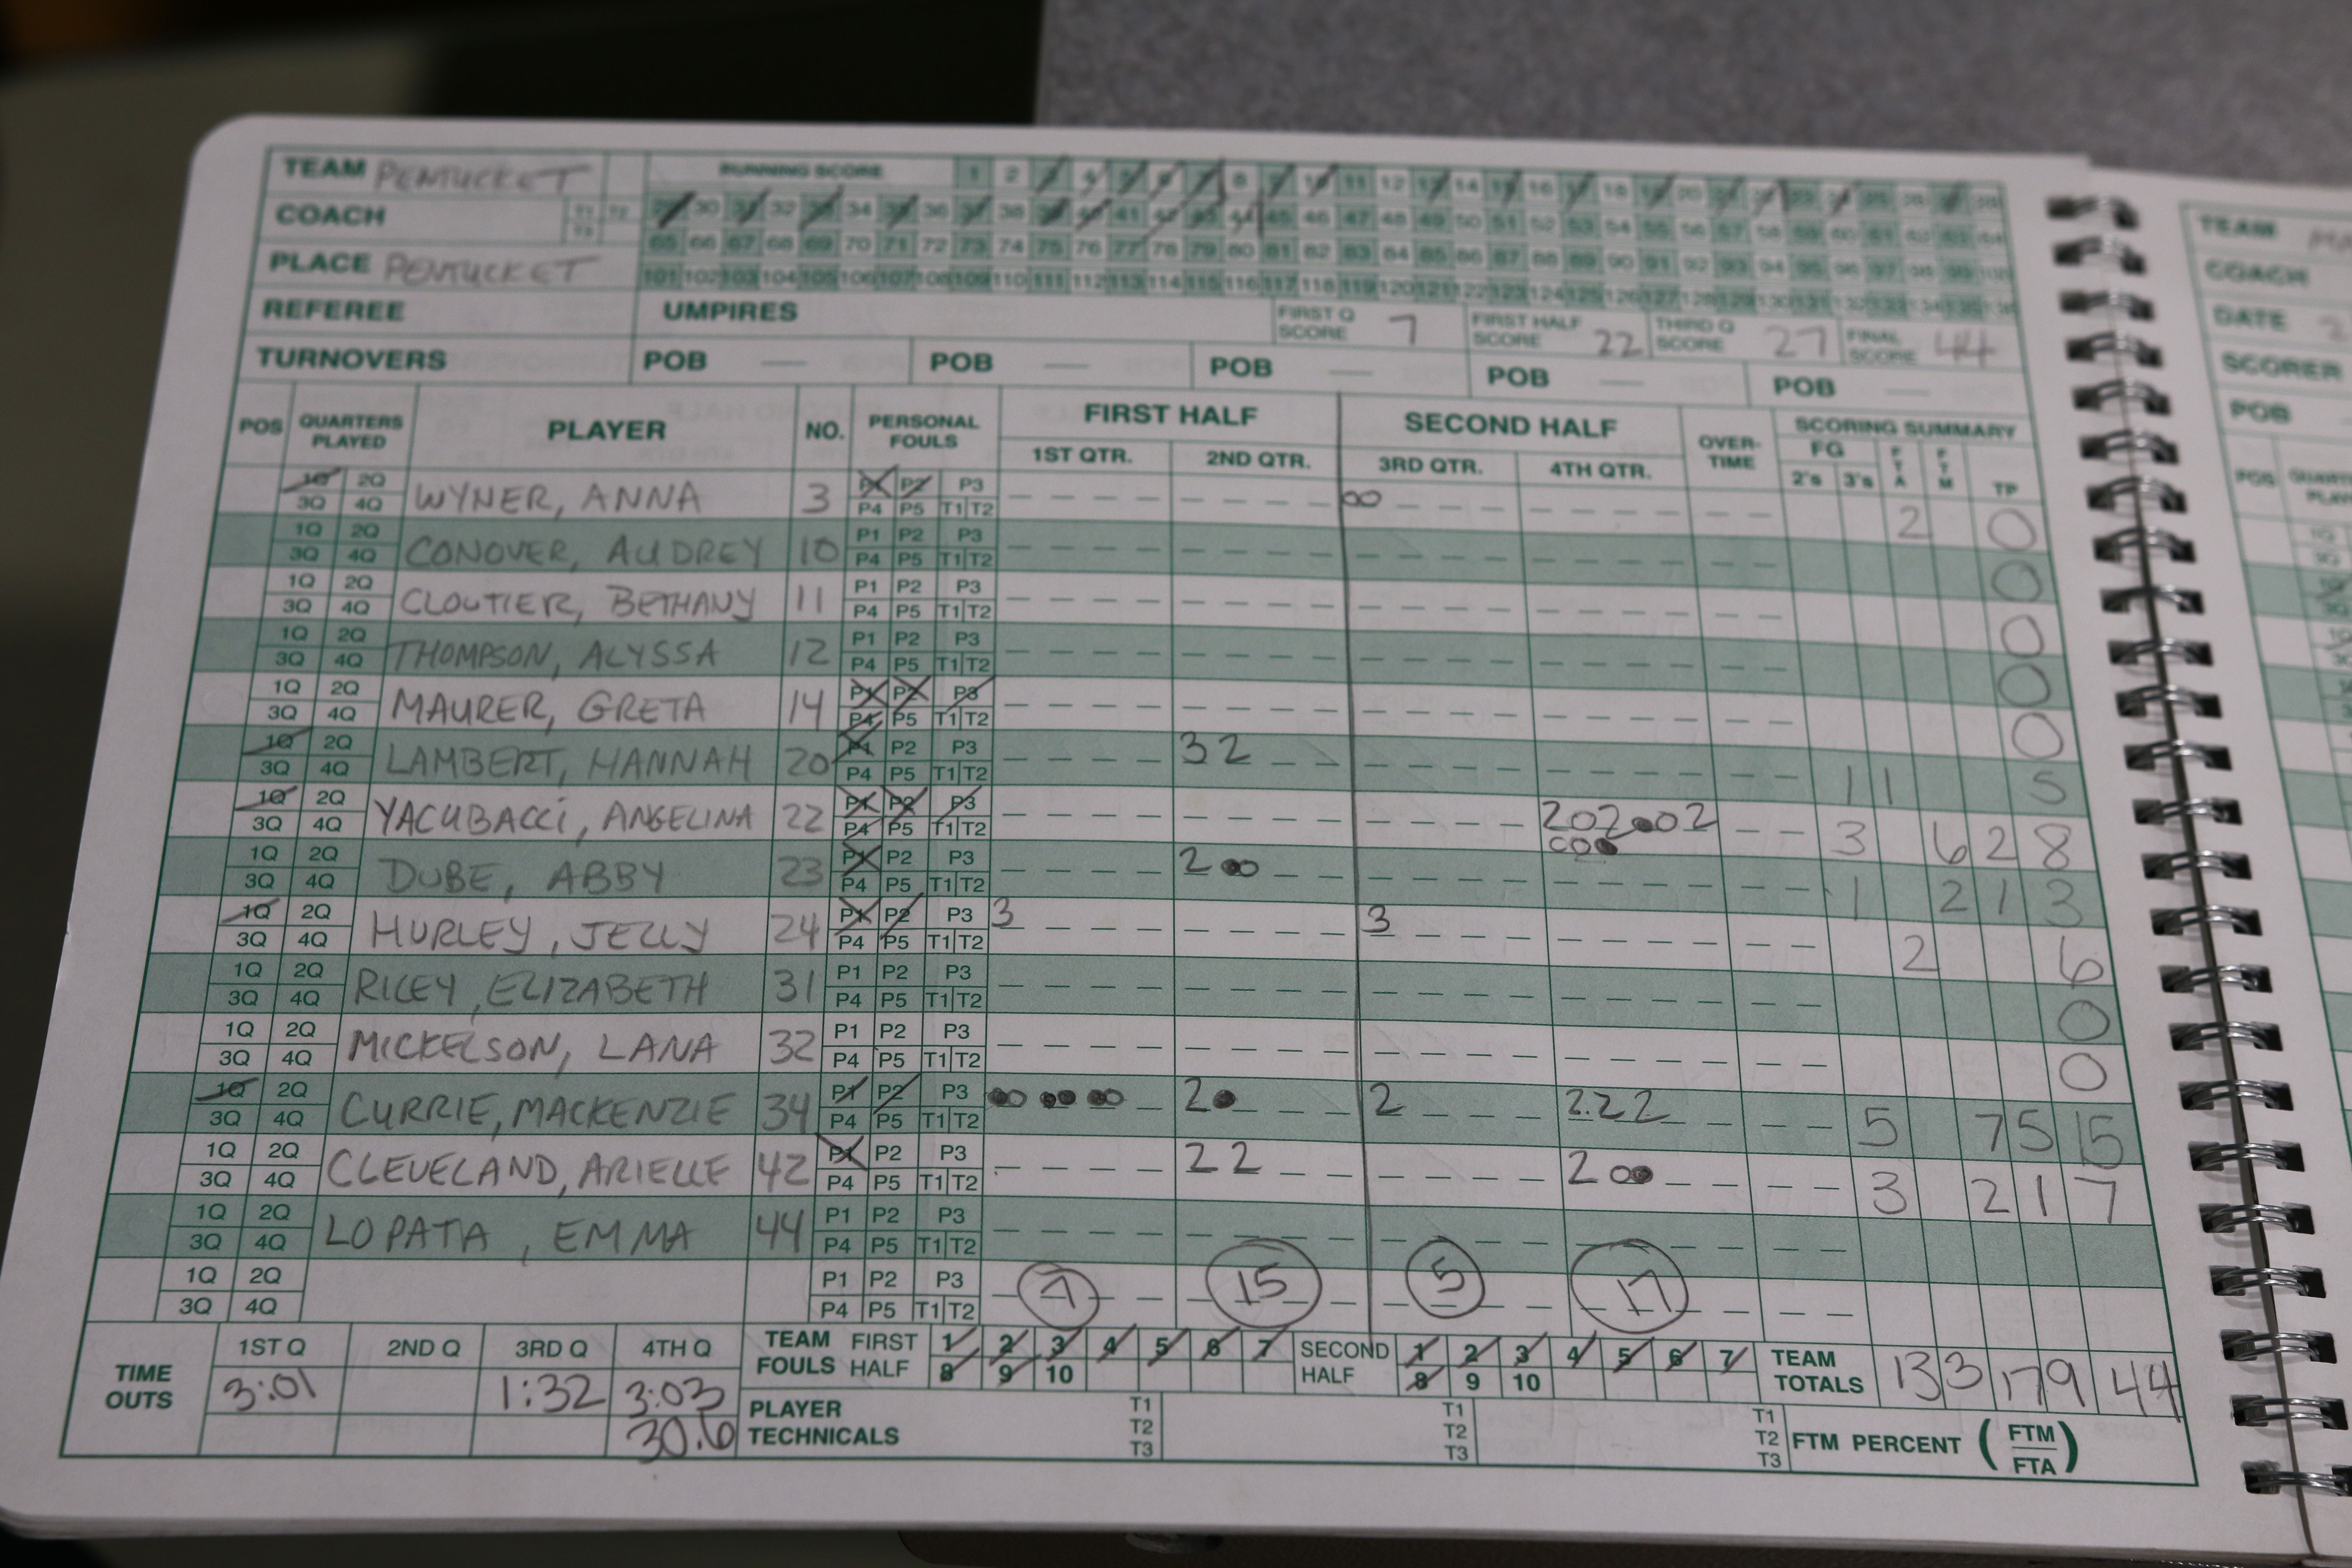 TEAM PENTUCKET RUNNING SCORE 1 2 3 4 5 6 7 8 9 10 11 12 13 14 15 16 17 18 19 20 21 22 23 24 25 26 27 28
COACH T1 T2 T3 29 30 31 32 33 34 35 36 37 38 39 40 41 42 43 44 45 46 47 48 49 50 51 52 53 54 55 56 57 58 59 60 61 62 63 64
65 66 67 68 69 70 71 72 73 74 75 76 77 78 79 80 81 82 83 84 85 86 87 88 89 90 91 92 93 94 95 96 97 98 99 100
PLACE PENTUCKET 101 102 103 104 105 106 107 108 109 110 111 112 113 114 115 116 117 118 119 120 121 122 123 124 125 126 127 128 129 130 131 132 133 134 135 136
REFEREE UMPIRES FIRST Q SCORE 7 FIRST HALF SCORE 22 THIRD Q SCORE 27 FINAL SCORE 44
TURNOVERS POB — POB — POB — POB — POB —
POS QUARTERS PLAYED PLAYER NO. PERSONAL FOULS FIRST HALF SECOND HALF OVER-TIME SCORING SUMMARY
1ST QTR. 2ND QTR. 3RD QTR. 4TH QTR. FG 2's 3's FTA FTM TP
1Q 2Q WYNER, ANNA 3 P1 P2 P3 00 2 0
3Q 4Q P4 P5 T1 T2
1Q 2Q CONOVER, AUDREY 10 P1 P2 P3 0
3Q 4Q P4 P5 T1 T2
1Q 2Q CLOUTIER, BETHANY 11 P1 P2 P3 0
3Q 4Q P4 P5 T1 T2
1Q 2Q THOMPSON, ALYSSA 12 P1 P2 P3 0
3Q 4Q P4 P5 T1 T2
1Q 2Q MAURER, GRETA 14 P1 P2 P3 0
3Q 4Q P4 P5 T1 T2
1Q 2Q LAMBERT, HANNAH 20 P1 P2 P3 3 2 1 1 5
3Q 4Q P4 P5 T1 T2
1Q 2Q YACUBACCI, ANGELINA 22 P1 P2 P3 202●02 3 6 2 8
3Q 4Q P4 P5 T1 T2 000●
1Q 2Q DUBE, ABBY 23 P1 P2 P3 2 ●0 1 2 1 3
3Q 4Q P4 P5 T1 T2
1Q 2Q HURLEY, JEZLY 24 P1 P2 P3 3 3 2 6
3Q 4Q P4 P5 T1 T2
1Q 2Q RILEY, ELIZABETH 31 P1 P2 P3 0
3Q 4Q P4 P5 T1 T2
1Q 2Q MICKELSON, LANA 32 P1 P2 P3 0
3Q 4Q P4 P5 T1 T2
1Q 2Q CURRIE, MACKENZIE 34 P1 P2 P3 ●0 ●● ●0 2● 2 2 2 2 5 7 5 15
3Q 4Q P4 P5 T1 T2
1Q 2Q CLEVELAND, ARIELLE 42 P1 P2 P3 2 2 2 0● 3 2 1 7
3Q 4Q P4 P5 T1 T2
1Q 2Q LOPATA, EMMA 44 P1 P2 P3
3Q 4Q P4 P5 T1 T2
1Q 2Q P1 P2 P3 7 15 5 17
3Q 4Q P4 P5 T1 T2
TIME OUTS 1ST Q 2ND Q 3RD Q 4TH Q TEAM FOULS FIRST HALF 1 2 3 4 5 6 7 SECOND HALF 1 2 3 4 5 6 7 TEAM TOTALS 13 3 17 9 44
3:01 1:32 3:03 8 9 10 8 9 10
30.6 PLAYER TECHNICALS T1 T2 T3 T1 T2 T3 T1 T2 T3 FTM PERCENT (FTM/FTA)
TEAM
COACH
DATE
SCORER
POB
POS